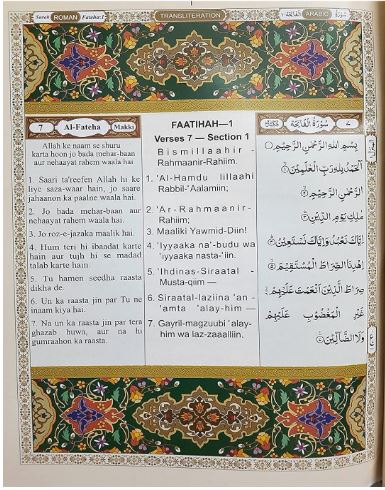 ROMAN
TRANSLITERATION
ARABIC
7 Al-Fateha Makki
Allah ke naam se shuru
karta hoon jo bada mehar-baan
aur nehaayat rahem waala hai
1. Saari ta'reefen Allah hi ke
liye saza-waar hain, jo saare
jahaanon ka paalne waala hai.
2. Jo bada mehar-baan aur
nehaayat rahem waala hai.
3. Jo roz-e-jazaka maalik hai.
4. Hum teri hi ibandat karte
hain aur tujh hi se madad
talab karte hain.
5. Tu hamen seedha raasta
dikha de.
6. Un ka raasta jin par Tu ne
inaam kiya hai.
7. Na un ka raasta jin par tera
ghazab huwa, aur na hi
gumraahon ka raasta.
FAATIHAH—1
Verses 7 — Section 1
Bismillaahir-
Rahmaanir-Rahiim.
1. 'Al-Hamdu lillaahi
Rabbil-'Aalamiin;
2. 'Ar-Rahmaanir-
Rahiim;
3. Maaliki Yawmid-Diin!
4. 'Iyyaaka na'-budu wa
'iyyaaka nasta-'iin.
5. 'Ihdinas-Siraatal-
Musta-qim —
6. Siraatal-laziina 'an-
'amta 'alay-him —
7. Gayril-magzuubi 'alay-
him wa laz-zaaalliin.
سُوْرَةُ الْفَاتِحَةِ
بِسْمِ اللّٰهِ الرَّحْمٰنِ الرَّحِيْمِ
اَلْحَمْدُ لِلّٰهِ رَبِّ الْعٰلَمِيْنَ
الرَّحْمٰنِ الرَّحِيْمِ
مٰلِكِ يَوْمِ الدِّيْنِ
اِيَّاكَ نَعْبُدُ وَاِيَّاكَ نَسْتَعِيْنُ
اِهْدِنَا الصِّرَاطَ الْمُسْتَقِيْمَ
صِرَاطَ الَّذِيْنَ اَنْعَمْتَ عَلَيْهِمْ
غَيْرِ الْمَغْضُوْبِ عَلَيْهِمْ
وَلَا الضَّآلِّيْنَ
ع